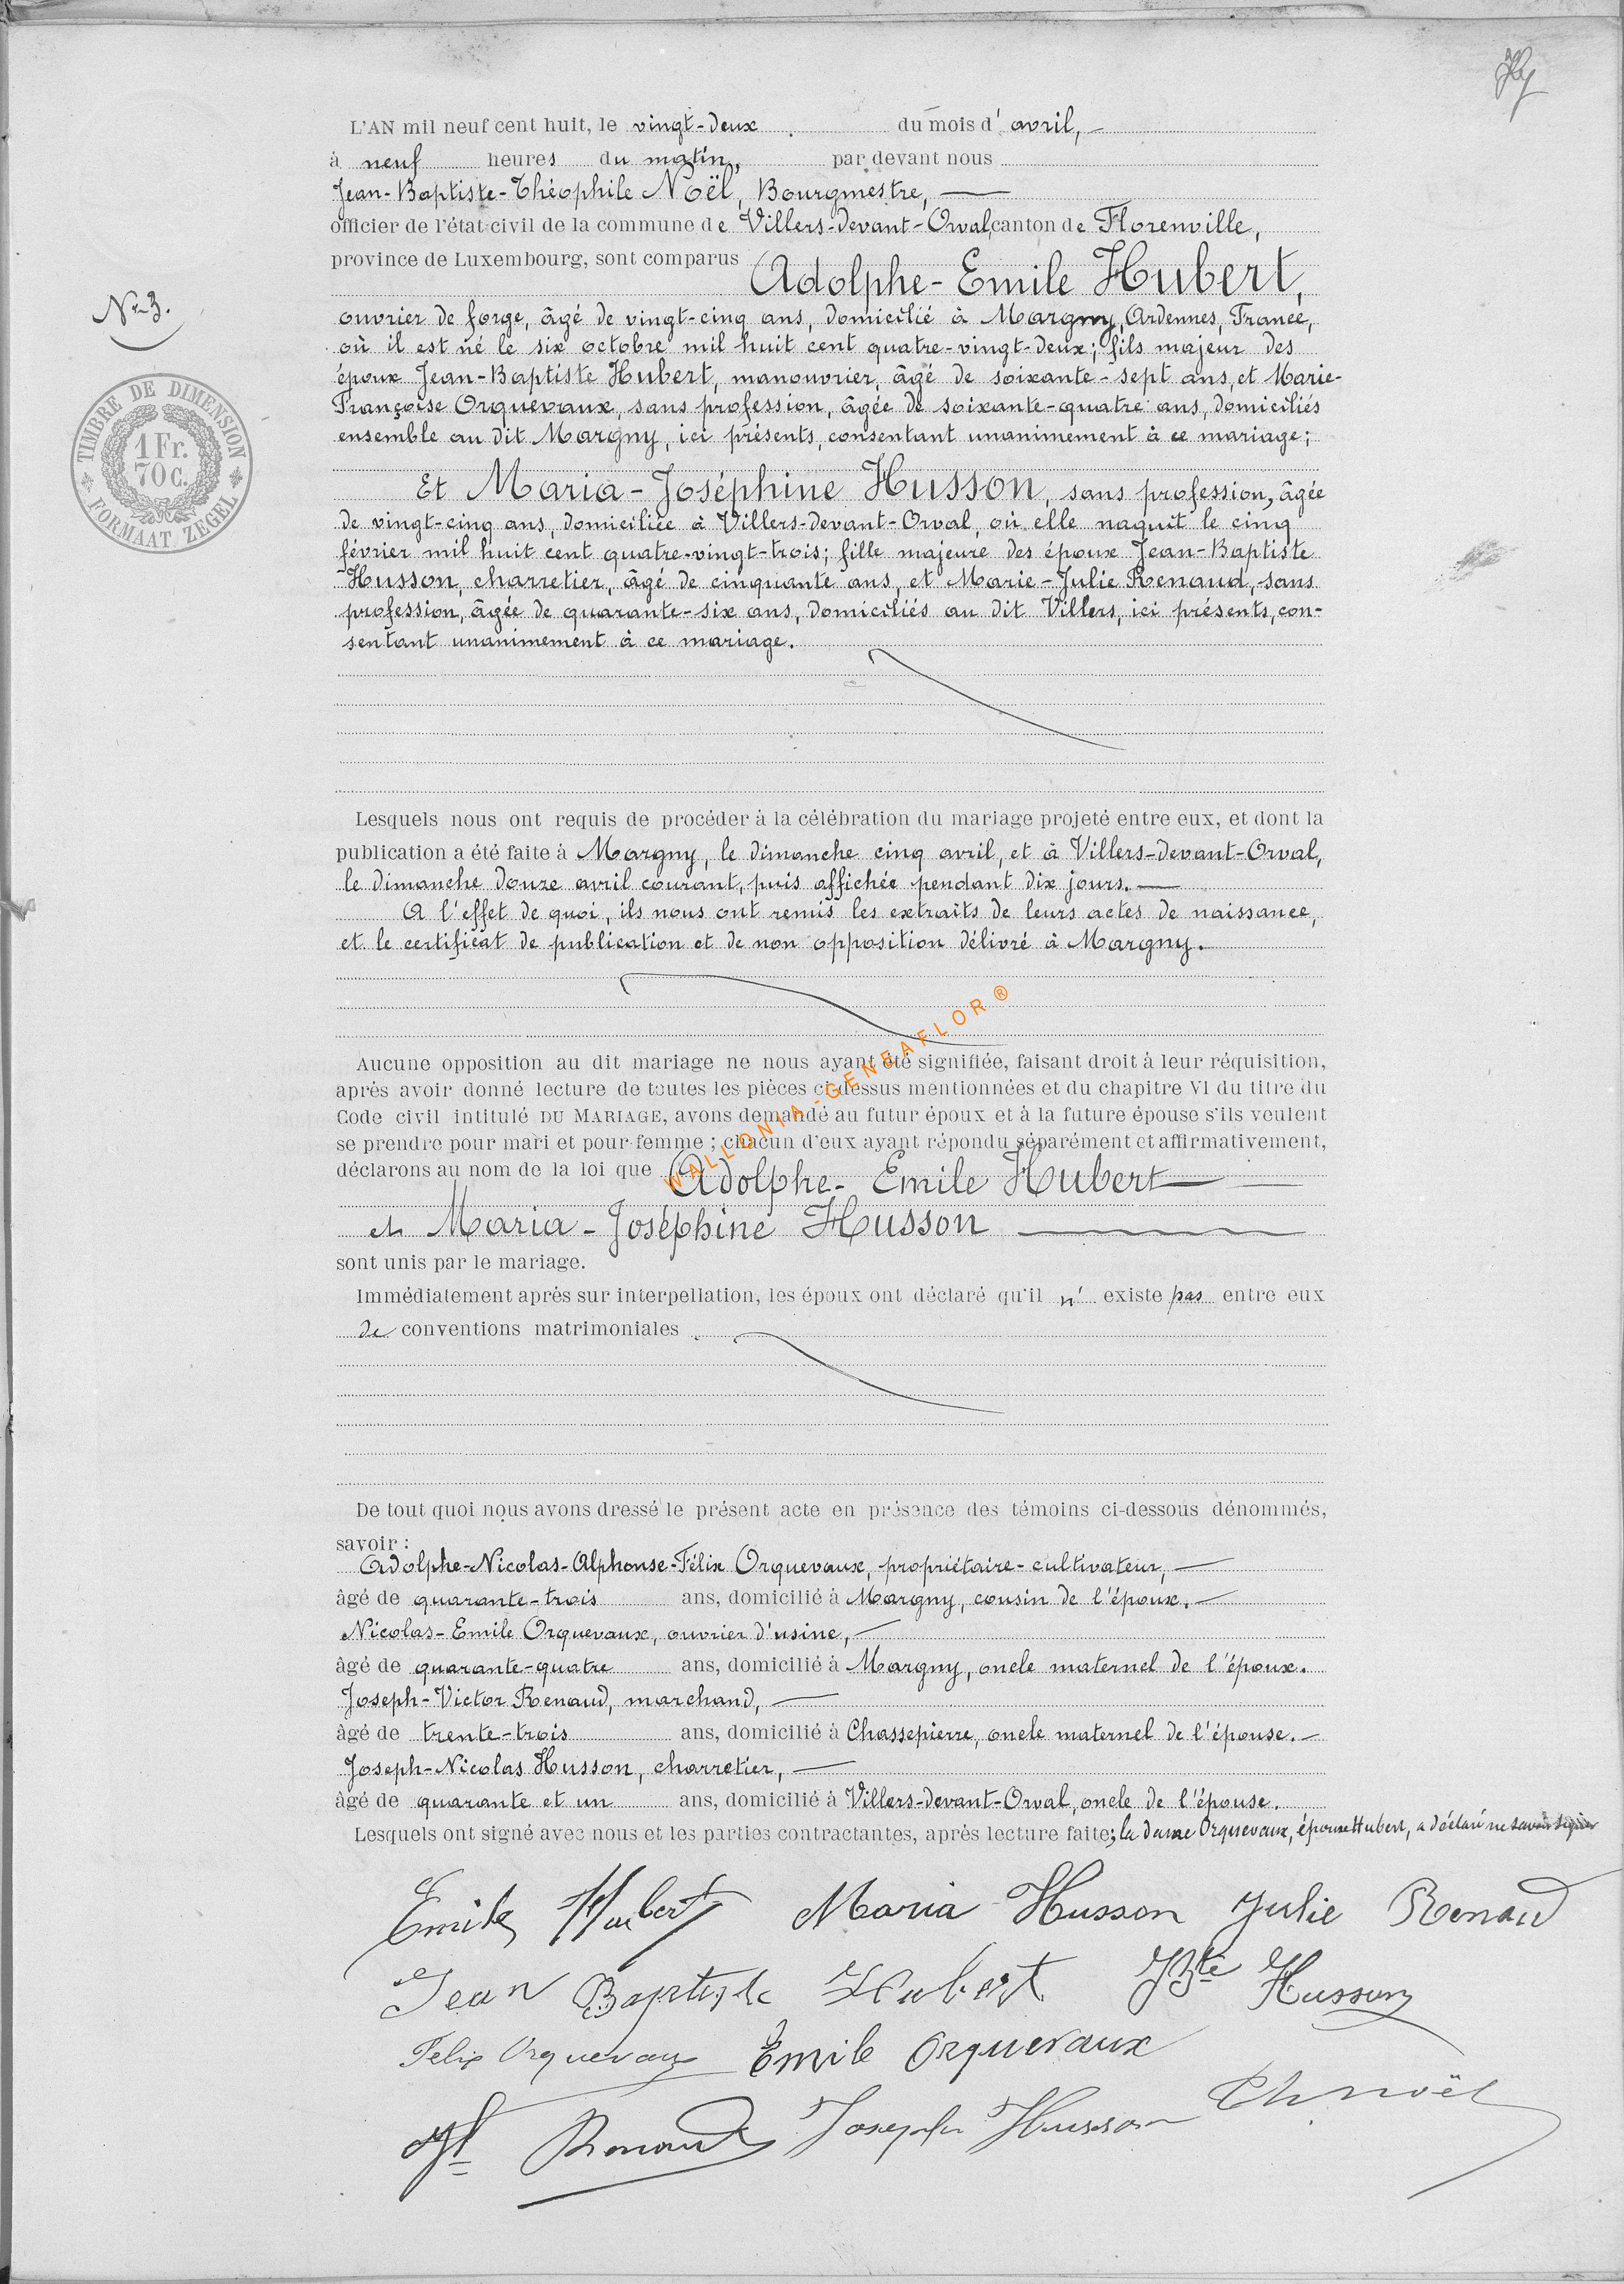 L'AN mil neuf cent huit, le vingt-deux du mois d'avril,
à neuf heures du matin, par devant nous
Jean-Baptiste-Théophile Noël, Bourgmestre,
officier de l'état-civil de la commune de Villers-devant-Orval, canton de Florenville,
province de Luxembourg, sont comparus Adolphe-Emile Hubert,
ouvrier de forge, âgé de vingt-cinq ans, domicilié à Margny, Ardennes, France,
où il est né le six octobre mil huit cent quatre-vingt-deux; fils majeur des
époux Jean-Baptiste Hubert, manouvrier, âgé de soixante-sept ans, et Marie-
Françoise Orquevaux, sans profession, âgée de soixante-quatre ans, domiciliés
ensemble au dit Margny, ici présents, consentant unanimement à ce mariage;
Et Maria-Joséphine Husson, sans profession, âgée
de vingt-cinq ans, domiciliée à Villers-devant-Orval, où elle naquit le cinq
février mil huit cent quatre-vingt-trois; fille majeure des époux Jean-Baptiste
Husson, charretier, âgé de cinquante ans, et Marie-Julie Renaud, sans
profession, âgée de quarante-six ans, domiciliés au dit Villers, ici présents, con-
sentant unanimement à ce mariage.
N° 3.
TIMBRE DE DIMENSION
1 Fr.
70 C.
FORMAAT ZEGEL
Lesquels nous ont requis de procéder à la célébration du mariage projeté entre eux, et dont la
publication a été faite à Margny, le dimanche cinq avril, et à Villers-devant-Orval,
le dimanche douze avril courant, puis affichée pendant dix jours.
A l'effet de quoi, ils nous ont remis les extraits de leurs actes de naissance,
et le certificat de publication et de non opposition délivré à Margny.
Aucune opposition au dit mariage ne nous ayant été signifiée, faisant droit à leur réquisition,
après avoir donné lecture de toutes les pièces ci-dessus mentionnées et du chapitre VI du titre du
Code civil intitulé DU MARIAGE, avons demandé au futur époux et à la future épouse s'ils veulent
se prendre pour mari et pour femme ; chacun d'eux ayant répondu séparément et affirmativement,
déclarons au nom de la loi que Adolphe-Emile Hubert
et Maria-Joséphine Husson
sont unis par le mariage.
WALLONIA-GENEAFLOR ®
Immédiatement après sur interpellation, les époux ont déclaré qu'il n'existe pas entre eux
de conventions matrimoniales
De tout quoi nous avons dressé le présent acte en présence des témoins ci-dessous dénommés,
savoir :
Adolphe-Nicolas-Alphonse-Félix Orquevaux, propriétaire-cultivateur,
âgé de quarante-trois ans, domicilié à Margny, cousin de l'époux.
Nicolas-Emile Orquevaux, ouvrier d'usine,
âgé de quarante-quatre ans, domicilié à Margny, oncle maternel de l'époux.
Joseph-Victor Renaud, marchand,
âgé de trente-trois ans, domicilié à Chassepierre, oncle maternel de l'épouse.
Joseph-Nicolas Husson, charretier,
âgé de quarante et un ans, domicilié à Villers-devant-Orval, oncle de l'épouse.
Lesquels ont signé avec nous et les parties contractantes, après lecture faite; la dame Orquevaux, épouse Hubert, a déclaré ne savoir signer
Emile Hubert Maria Husson Julie Renaud
Jean Baptiste Hubert JBte Husson
Felix Orquevaux Emile Orquevaux
Renaud Joseph Husson Th Noël